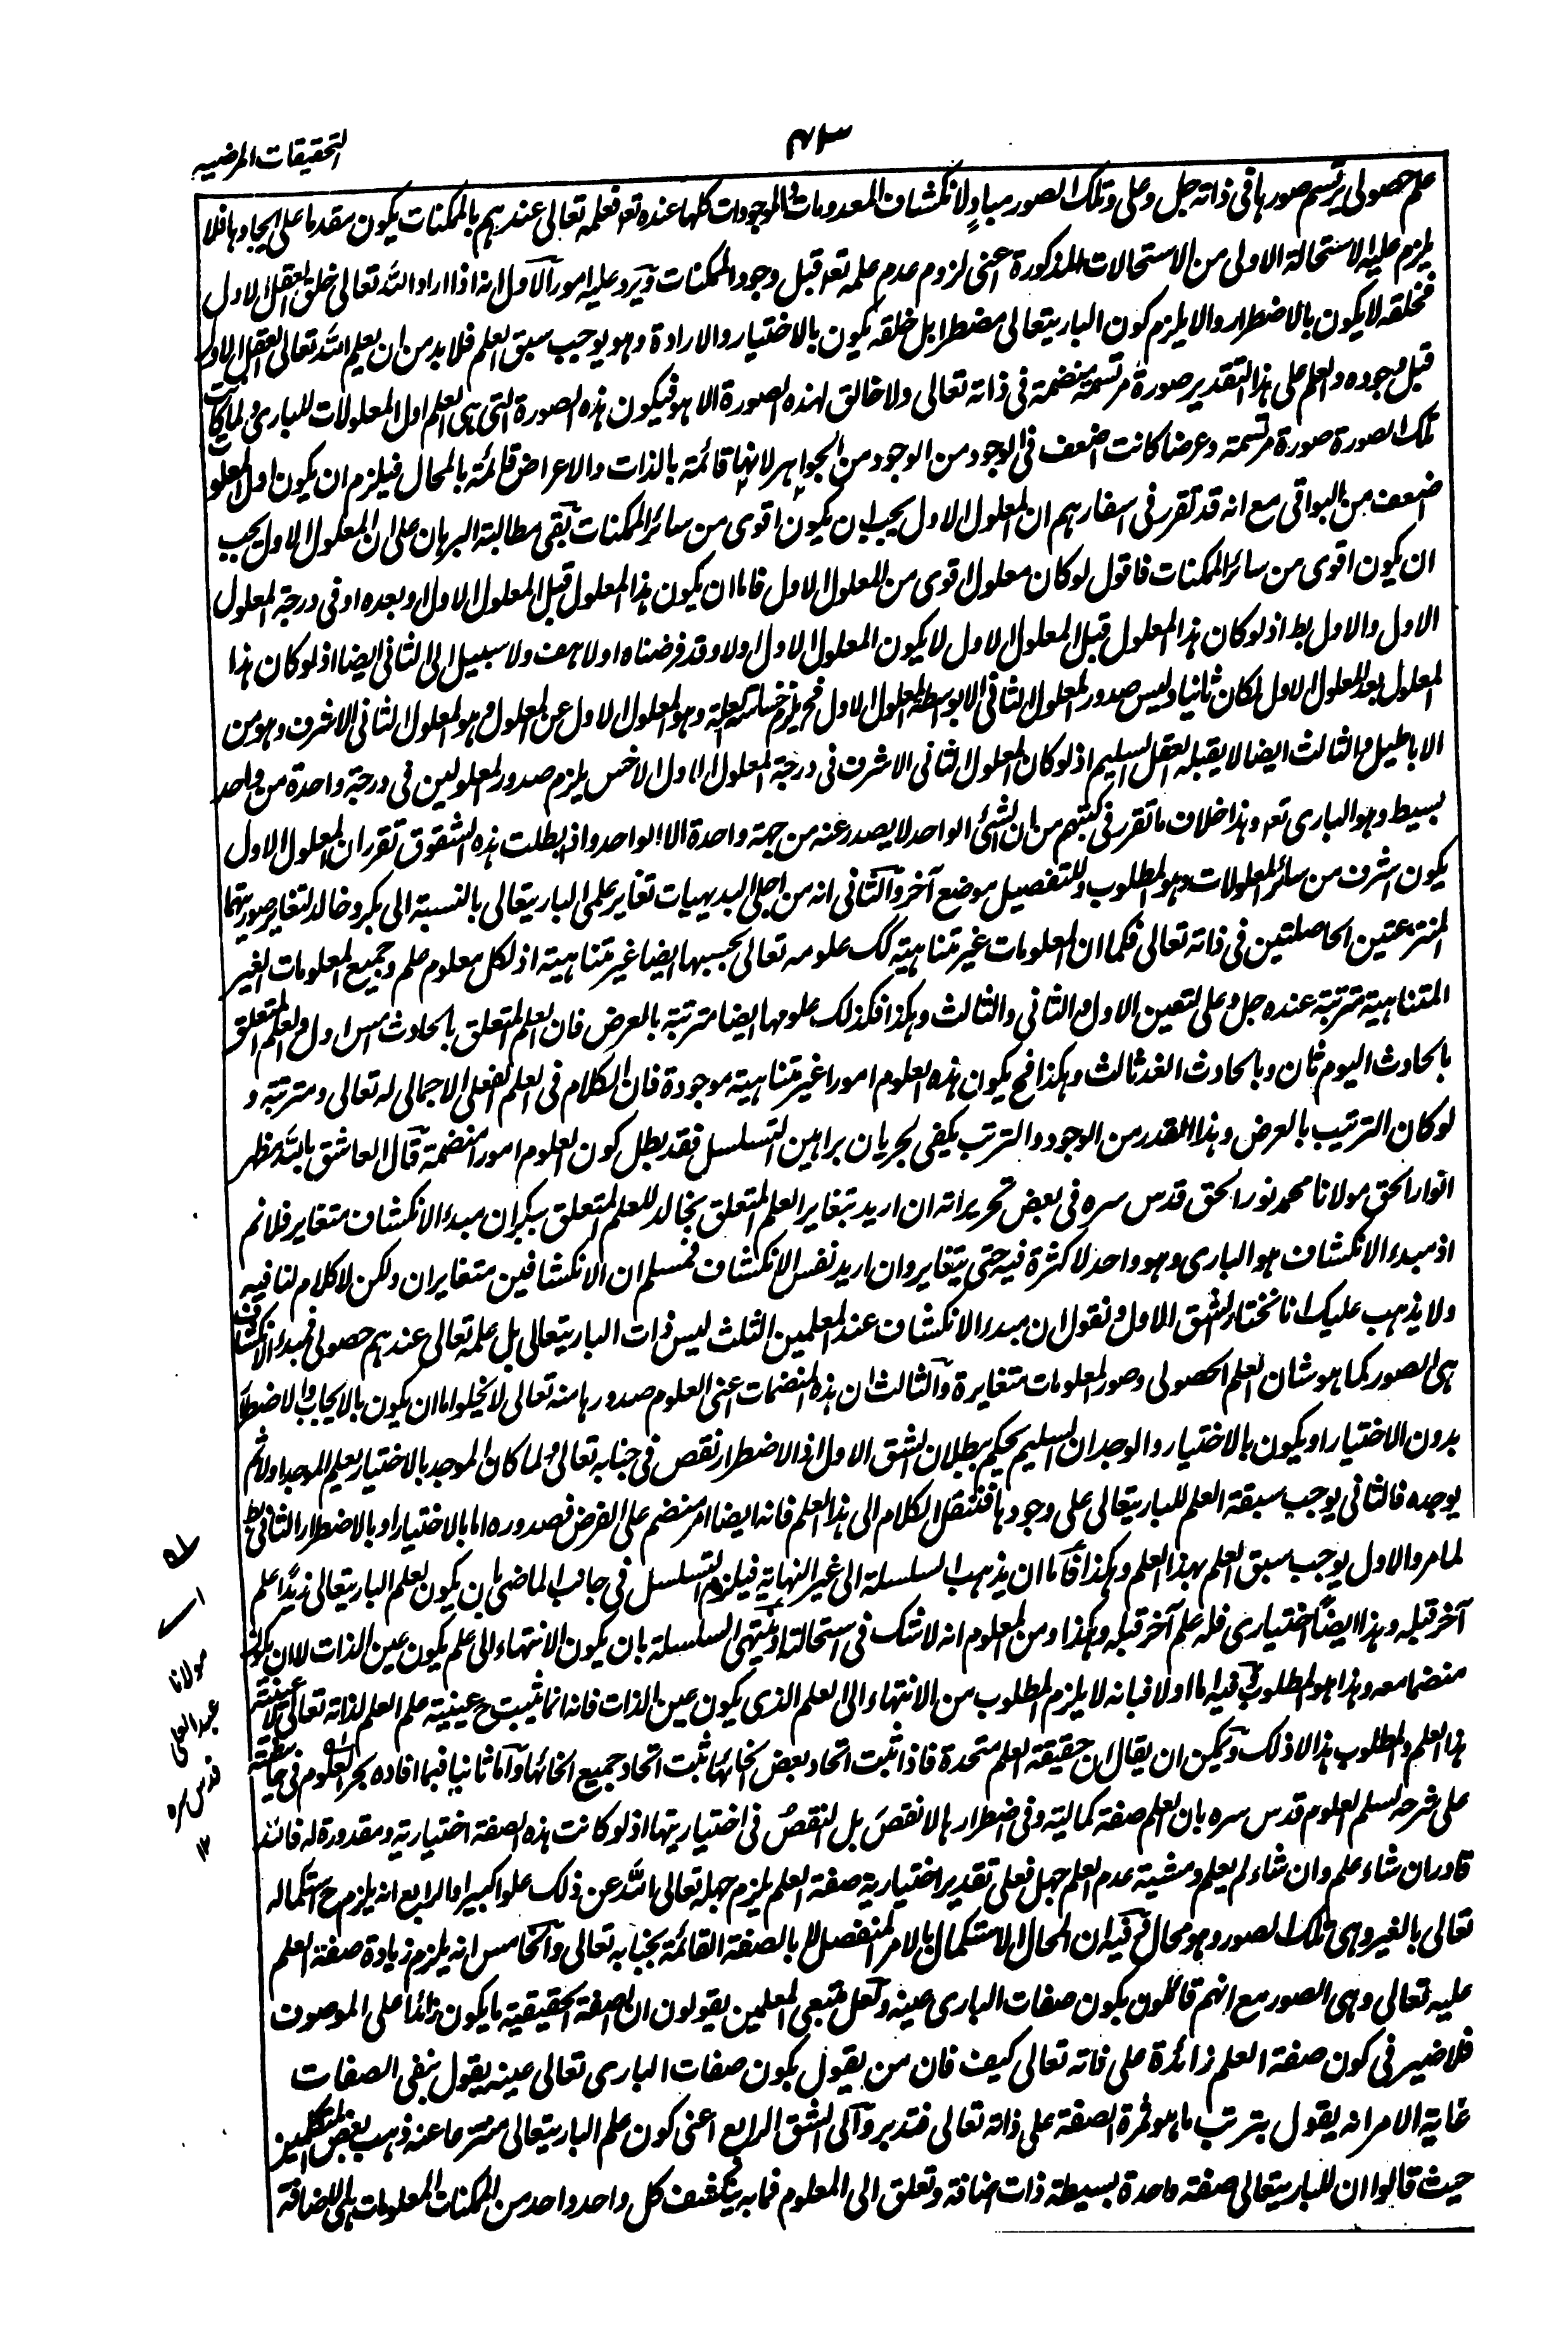 التحقيقات المرضيه
علم حصولى يرتسم صورها فى ذاته جل وعلى وتلك الصور مبادٍ لانكشاف المعدومات والموجودات كلها عنده تعہ فعلمه تعالى عندهم بالممكنات يكون مقدما على ايجادها فلا
يلزم عليه الاستحالة الاولى من الاستحالات المذكورة اعنى لزوم عدم علمه تعہ قبل وجود الممكنات ويرد عليه امور الاول انه اذا اراد الله تعالى خلق العقل الاول
فخلقه لا يكون بالاضطرار والا يلزم كون الباريتعالى مضطرا بل خلقه يكون بالاختيار والارادة وهو يوجب سبق العلم فلابد من ان يعلم الله تعالى العقل الاول
قبل وجوده والعلم على هذا التقدير صورة مرتسمة منضمة فى ذاته تعالى ولا خالق لهذه الصورة الا هو فيكون هذه الصورة التى هى العلم اول المعلولات للبارى ولما كانت
تلك الصورة صورة مرتسمة وعرضا كانت اضعف فى الوجود من الوجود من الجواهر لانها قائمة بالذات والاعراض قائمة بالمحال فيلزم ان يكون اول المعلول
اضعف من البواقى مع انه قد تقرر فى اسفارهم ان المعلول الاول يجب ان يكون اقوى من سائر الممكنات بقى مطالبة البرهان على ان المعلول الاول يجب
ان يكون اقوى من سائر الممكنات فاقول لو كان معلول اقوى من المعلول الاول فاما ان يكون هذا المعلول قبل المعلول الاول او بعده او فى درجة المعلول
الاول والاول بط اذ لو كان هذا المعلول قبل المعلول الاول لا يكون المعلول الاول اولا وقد فرضناه اولا هف ولا سبيل الى الثانى ايضا اذ لو كان هذا
المعلول بعد المعلول الاول لكان ثانيا وليس صدور المعلول الثانى الا بواسطة المعلول الاول فح يلزم خساسة العلة وهو المعلول الاول عن المعلول وهو المعلول الثانى الاشرف وهو من
الاباطيل والثالث ايضا لا يقبله العقل السليم اذ لو كان المعلول الثانى الاشرف فى درجة المعلول الاول الاخس يلزم صدور المعلولين فى درجة واحدة من واحد
بسيط وهو البارى تعہ وهذا خلاف ما تقرر فى كتبهم من ان الشئ الواحد لا يصدر عنه من جهة واحدة الا الواحد واذ بطلت هذه الشقوق تقرر ان المعلول الاول
يكون اشرف من سائر المعلولات وهو المطلوب وللتفصيل موضع آخر والثانى انه من اجلى البديهيات تغاير علمى الباريتعالى بالنسبة الى بكر وخالد لتغاير صورتيهما
المنتزعتين الحاصلتين فى ذاته تعالى فكما ان المعلومات غير متناهية كك علومه تعالى بحسبها ايضا غير متناهية اذ لكل معلوم علم وجميع المعلومات الغير
المتناهية مترتبة عنده جل وعلى لتعين الاول والثانى والثالث وهكذا فكذلك علومها ايضا مترتبة بالعرض فان العلم المتعلق بالحادث امس اول والعلم المتعلق
بالحادث اليوم ثان وبالحادث الغد ثالث وهكذا فح يكون هذه العلوم امورا غير متناهية موجودة فان الكلام فى العلم الفعلى الاجمالى له تعالى ومترتبة و
لو كان الترتيب بالعرض وهذا القدر من الوجود والترتب يكفى لجريان براهين التسلسل فقد بطل كون العلوم امورا منضمة قال العاشق بالله مظهر
انوار الحق مولانا محمد نور الحق قدس سره فى بعض تحريراته ان اريد بتغاير العلم المتعلق بخالد للعلم المتعلق ببكر ان مبدء الانكشاف متغاير فلا نم
اذ مبدء الانكشاف هو البارى وهو واحد لا كثرة فيه حتى يتغاير وان اريد نفس الانكشاف فمسلم ان الانكشافين متغايران ولكن لا كلام لنا فيه
ولا يذهب عليك انا نختار الشق الاول ونقول ان مبدء الانكشاف عند المعلمين الثلث ليس ذات الباريتعالى بل علمه تعالى عندهم حصولى فمبدء الانكشاف
هى الصور كما هو شان العلم الحصولى وصور المعلومات متغايرة والثالث ان هذه المنضمات اعنى العلوم صدورها منه تعالى لا يخلو اما ان يكون بالايجاب والاضطرار
بدون الاختيار او يكون بالاختيار والوجدان السليم يحكم ببطلان الشق الاول اذ الاضطرار نقص فى جنابه تعالى ولما كان الموجد بالاختيار يعلم الموجد اولا ثم
يوجده فالثانى يوجب سبقة العلم للباريتعالى على وجودها فننتقل الكلام الى هذا العلم فانه ايضا امر منضم على الفرض فصدوره اما بالاختيار او بالاضطرار الثانى بط
لما مر والاول يوجب سبق العلم بهذا العلم وهكذا فاما ان يذهب السلسلة الى غير النهاية فيلزم التسلسل فى جانب الماضى بان يكون لعلم الباريتعالى زيدًا علم
آخر قبله وهذا ايضًا اختيارى فله علم آخر قبله وهكذا ومن المعلوم انه لا شك فى استحالتة او ينتهى السلسلة بان يكون الانتهاء الى علم يكون عين الذات لا ان يكون
منضما معه وهذا هو المطلوب وفيه اما اولا فبانه لا يلزم المطلوب من الانتهاء الى العلم الذى يكون عين الذات فانه انما يثبت ح عينية علم العلم لذاته تعالى لا عينية
هذا العلم والمطلوب هذا لا ذلك ويمكن ان يقال ان حقيقة العلم متحدة فاذا ثبت اتحاد بعض انحائها ثبت اتحاد جميع انحائها واما ثانيا فبما افاده بحر العلوم فى حاشيته
على شرحه لسلم العلوم قدس سره بان العلم صفة كمالية وفى اضطرارها لا نقصَ بل النقصُ فى اختياريتها اذ لو كانت هذه الصفة اختيارية ومقدورة له فالله
قادر ان شاء علم وان شاء لم يعلم ومشية عدم العلم جهل فعلى تقدير اختيارية صفة العلم يلزم جهله تعالى الله عن ذلك علوا كبيرا والرابع انه يلزم ح استكماله
تعالى بالغير وهى تلك الصور وهو محال وفيه ان المحال الاستكمال بالامر المنفصل لا بالصفة القائمة بجنابه تعالى والخامس انه يلزم زيادة صفة العلم
عليه تعالى وهى الصور مع انهم قائلون بكون صفات البارى عينه ولعل متبعى المعلمين يقولون ان الصفة الحقيقية ما يكون زائدا على الموصوف
فلا ضير فى كون صفة العلم زائدة على ذاته تعالى كيف فان من يقول بكون صفات البارى تعالى عينه يقول بنفى الصفات
غاية الامر انه يقول بترتب ما هو ثمرة الصفة على ذاته تعالى فتدبر والى الشق الرابع اعنى كون علم الباريتعالى منتزعا عنه ذهب بعض المتكلمين
حيث قالوا ان للباريتعالى صفة واحدة بسيطة ذات اضافة وتعلق الى المعلوم فما به ينكشف كل واحد واحد من الممكنات المعلومات هى الاضافة
مولانا
عبد العلى
قدس سره
۱۲